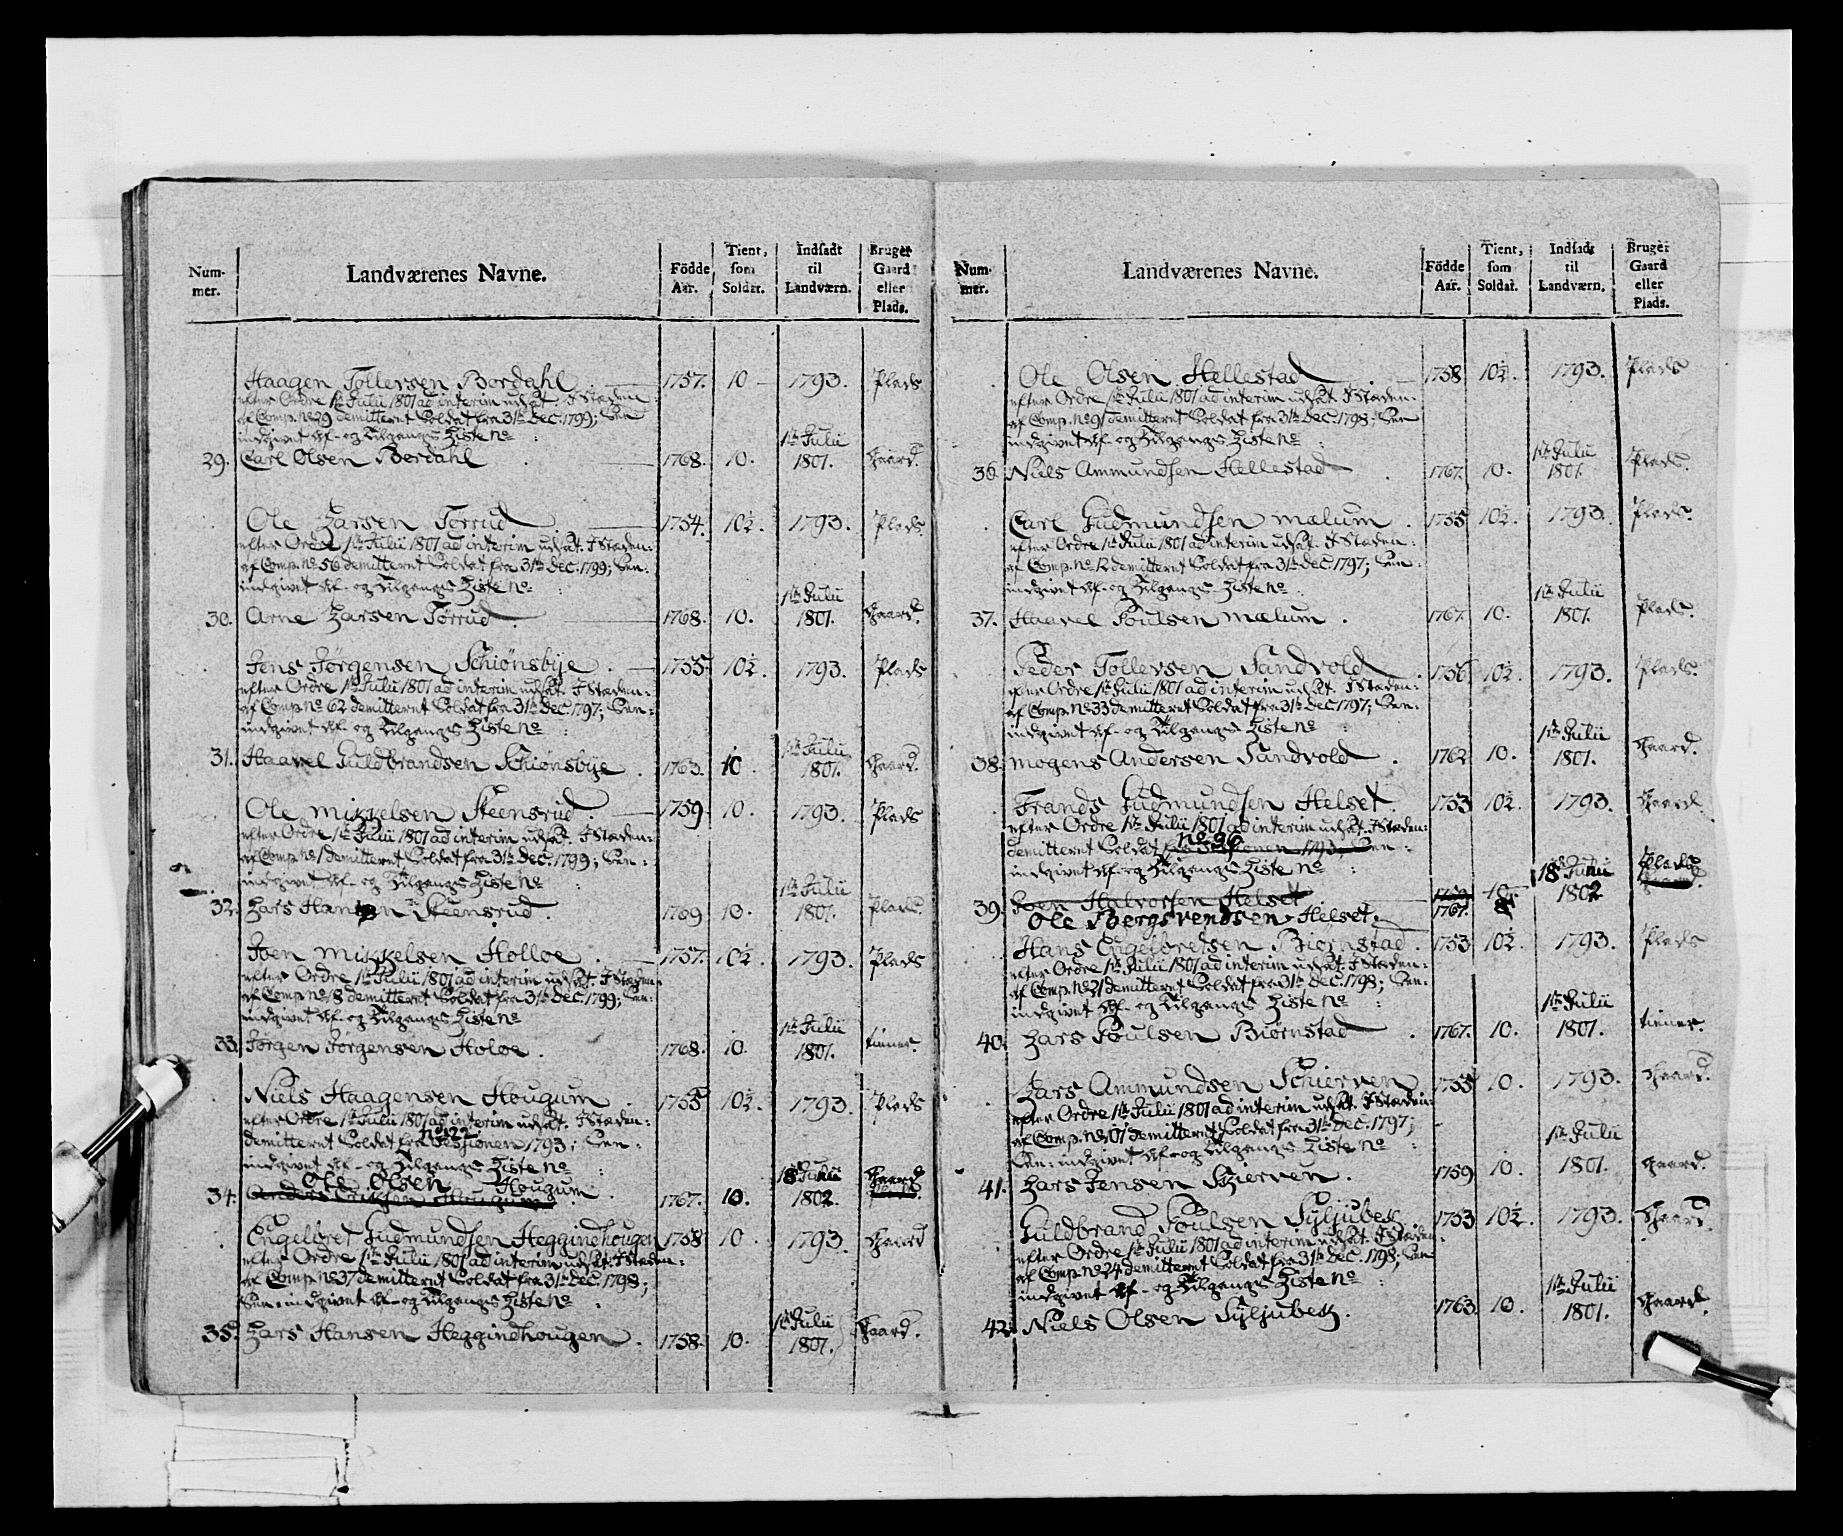 Num- mer. Landværenes Navne. Födde Aar. Tient, som Soldat. Indsadt til Landværn. Bruger Gaard eller Plads.
Haagen Tollersen Bordahl 1757. 10 1793. Plads
efter Ordre 1ste Julii 1801 ad interim udsat. I Stæden
af Comp. No 29 demitteret Soldat fra 31te Dec. 1799; Sen
indgivet Af- og Tilgangs Liste No
29. Carl Olsen Bordahl 1768. 10. 1ste Julii 1801. Gaard.
Ole Larsen Torrud 1754. 10½. 1793. Plads
efter Ordre 1ste Julii 1801 ad interim udsat. I Stæden:
af Comp. No 56 demitteret Soldat fra 31te Dec. 1799; Sen:
indgivet Af- og Tilgangs Liste No
30. Arne Larsen Torrud. 1768. 10. 1ste Julii 1801. Gaard.
Jens Jörgensen Schiönsbye. 1755. 10½. 1793. Plads
efter Ordre 1ste Julii 1801 ad interim udsat. I Stæden:
af Comp. No 62 demitteret Soldat fra 31te Dec. 1797; Sen:
indgivet Af- og Tilgangs Liste No
31. Haavel Guldbrandsen Schiönsbye. 1763. 10. 1ste Julii 1801. Gaard.
Ole Mikkelsen Steensrud. 1759. 10. 1793. Plads
efter Ordre 1ste Julii 1801 ad interim udsat. I Stæden:
af Comp. No 1 demitteret Soldat fra 31te Dec. 1799; Sen:
indgivet Af- og Tilgangs Liste No
32. Lars Hansen Steensrud. 1769. 10. 1ste Julii 1801. Plads.
Joen Mikkelsen Holloe. 1757. 10½. 1793. Plads
efter Ordre 1ste Julii 1801 ad interim udsat. I Stæden
af Comp. No 18 demitteret Soldat fra 31te Dec. 1799; Sen:
indgivet Af- og Tilgangs Liste No
33. Jörgen Jörgensen Holoe. 1768. 10. 1ste Julii 1801. tiener.
Niels Haagensen Hougum. 1755. 10½. 1793. Plads
efter Ordre 1ste Julii 1801 ad interim udsat. I Stæden:
No 122
demitteret Soldat fra Sessionen 1793; Sen:
indgivet Af- og Tilgangs Liste No
Ole Olsen Hougum.
34. Anders Eriksen Hougum 1767. 10. 18 Junii 1802. Gaard
Engelbret Gudmundsen Heggindhougen 1758. 10. 1793. Gaard
efter Ordre 1ste Julii 1801 ad interim udsat. I Stæden:
af Comp. No 37 demitteret Soldat fra 31te Dec. 1798;
Sen: indgivet Af- og Tilgangs Liste No
35. Lars Hansen Heggindhougen. 1758. 10. 1ste Julii 1801. Gaard.
Num- mer. Landværenes Navne. Födde Aar. Tient, som Soldat. Indsadt til Landværn. Bruger Gaard eller Plads.
Ole Olsen Hellestad 1758. 10½. 1793. Plads
efter Ordre 1ste Julii 1801 ad interim udsat. I Stæden:
af Comp. No 91 demitteret Soldat fra 31te Dec. 1798; Sen
indgivet Af- og Tilgangs Liste No
36. Niels Ammundsen Hellestad 1767. 10. 1ste Julii 1801. Plads.
Carl Gudmundsen Mælum. 1755. 10½. 1793. Plads.
efter Ordre 1ste Julii 1801 ad interim udsat. I Stæden:
af Comp. No 12 demitteret Soldat fra 31te Dec. 1797; Sen:
indgivet Af- og Tilgangs Liste No
37. Haavel Poulsen Mælum. 1767. 10. 1ste Julii 1801. Plads.
Peder Tollersen Sandvold 1756. 10½. 1793. Plads.
efter Ordre 1ste Julii 1801 ad interim udsat. I Stæden:
af Comp. No 33 demitteret Soldat fra 31te Dec. 1797; Sen:
indgivet Af- og Tilgangs Liste No
38. Mogens Andersen Sandvold. 1762. 10. 1ste Julii 1801. Gaard.
Frands Gudmundsen Helset. 1753. 10½. 1793. Gaard.
efter Ordre 1ste Julii 1801 ad interim udsat. I Stæden:
No 96
demitteret Soldat fra Sessionen 1793; Sen:
indgivet Af- og Tilgangs Liste No
39. Joen Halvorsen Helset 1759. 10. 18 Junii 1802 Plads
Ole Bergsvendsen Helset. 1767. 8.
Hans Engelbretsen Biörnstad. 1753. 10½. 1793. Plads
efter Ordre 1ste Julii 1801 ad interim udsat. I Stæden:
af Comp. No 21 demitteret Soldat fra 31te Dec. 1798; Sen:
indgivet Af- og Tilgangs Liste No
40. Lars Poulsen Biörnstad. 1767. 10. 1ste Julii 1801. tiener.
Lars Ammundsen Schierven 1755. 10. 1793. Gaard.
efter Ordre 1ste Julii 1801 ad interim udsat. I Stæden:
af Comp. No 101 demitteret Soldat fra 31te Dec. 1797;
Sen: indgivet Af- og Tilgangs Liste No
41. Lars Jensen Skierven. 1759. 10. 1ste Julii 1801. Gaard.
Guldbrand Poulsen Syljubek 1753. 10½. 1793. Gaard.
efter Ordre 1ste Julii 1801 ad interim udsat. I Stæden:
af Comp. No 24 demitteret Soldat fra 31te Dec. 1798; Sen
indgivet Af- og Tilgangs Liste No
42. Niels Olsen Syljubek. 1763. 10. 1ste Julii 1801. Gaard.